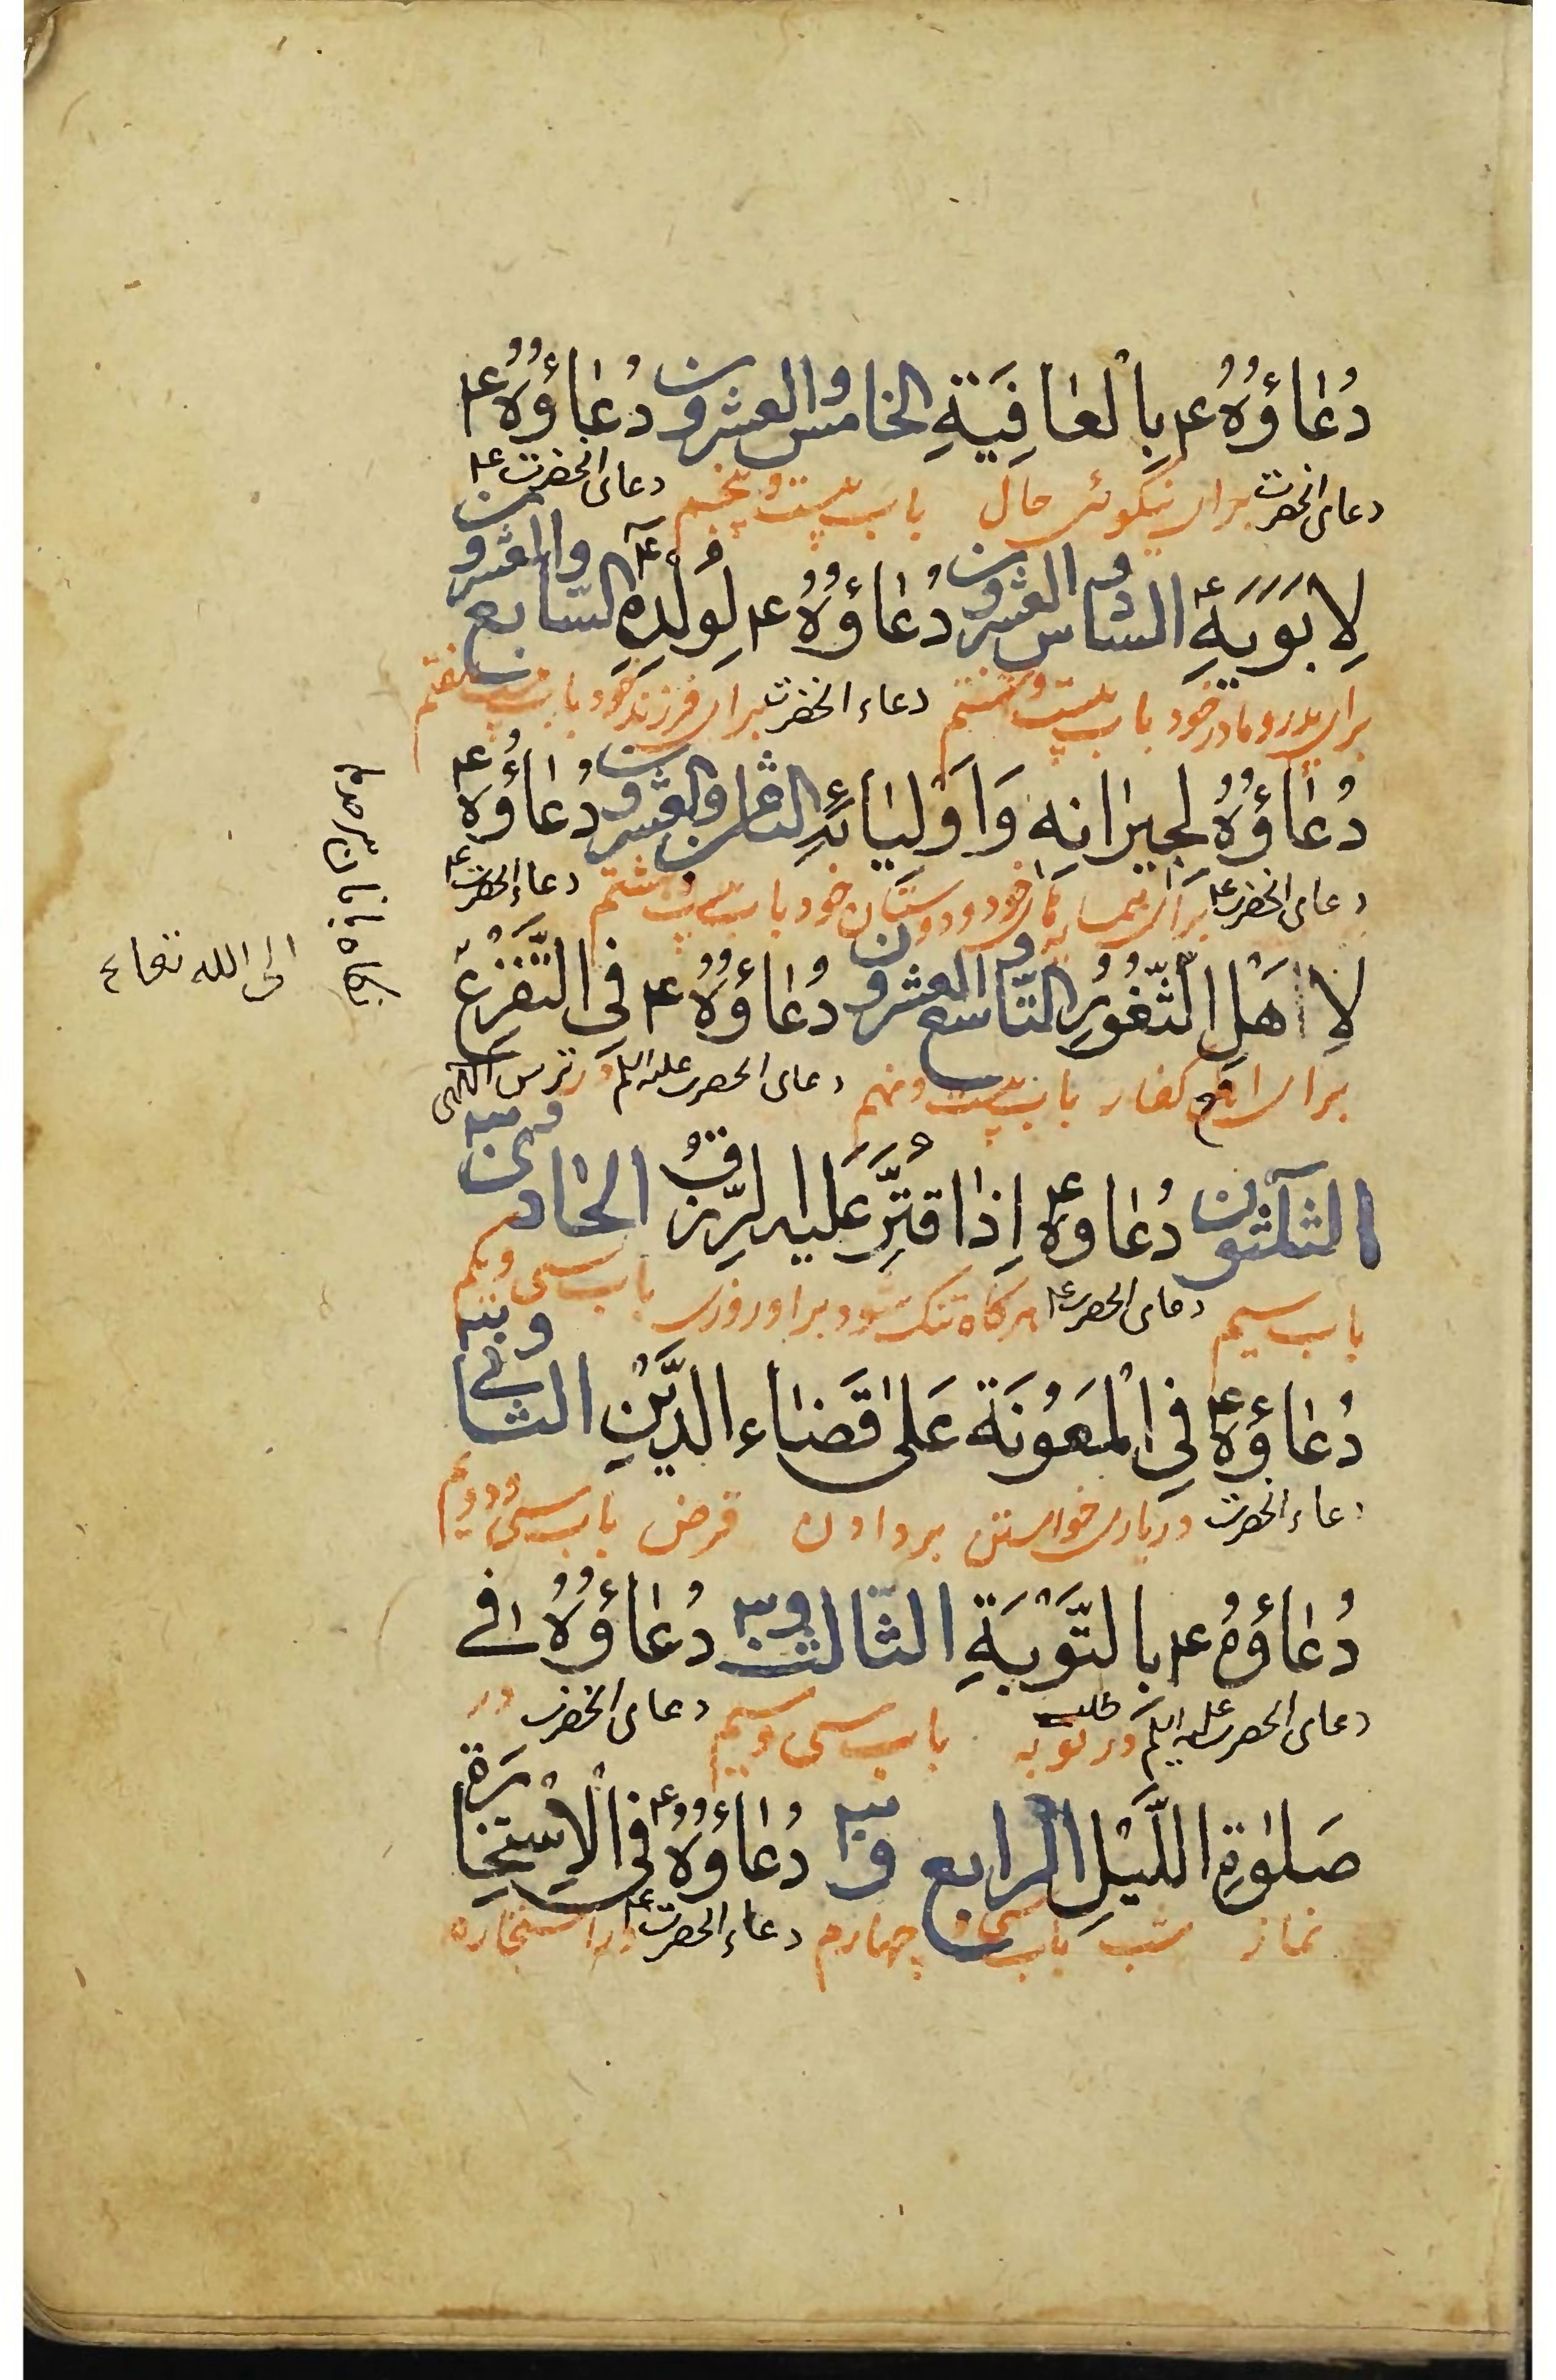 دُعٰاؤُهُ ع‍ بِالْعٰافِيَةِ الخامس والعشرون دُعٰاؤُهُ ع‍
دعای انحضرت برای نیکوئی حال باب بیست و پنجم دعای انحضرت ع‍
لِاَبَوَيَةِ السّادس والعشرون دُعٰاؤُهُ ع‍ لِوُلْدِهِ السّابع والعشرون
برای پدر و مادر خود باب بیست و ششم دعاء انحضرت برای فرزند خود باب بیست هفتم
دُعٰاؤُهُ لِجيرٰانِه وَاَوْلِيٰائِهِ الثامن والعشرون دُعٰاؤُهُ ع‍
دعای انحضرت ع‍ برای همسایه کان خود و دوستان خود باب بیست و هشتم دعاء انحضرت ع‍
لِاَهْلِ الثُّغُوُرِ التّاسع والعشرون دُعٰاؤُهُ ع‍ فِی التَّفَزُّعِ
برای دفع کفار باب بیست و نهم دعای انحضرت علیه السلم در ترس الهی
الثلثون دُعٰاوهُ ع‍ اِذٰا قتِّرَ عَلَيه الرِّزقُ الحٰادی و ثلثون
باب سیم دعای انحضرت ع‍ هرکاه تنک شود بر او روزی باب سی و یکم
دُعٰاؤهُ ع‍ فِی الْمَعُوْنَةِ عَلىٰ قَضٰاءِ الدَّيْنِ الثانی و ثلثون
دعاء انحضرت در یاری خواستن بر دادن قرض باب سی و دویم
دُعٰاؤهُ ع‍ بالتَّوْبَةِ الثّالث و ثلثون دُعٰاؤُهُ فی
دعای انحضرت علیه السلم در طلب توبه باب سی و سیم دعای انحضرت در
صَلوٰةِ اللَّيْلِ الرابع و ثلثون دُعٰاؤُهُ ع‍ فِی الْاِسْتِخٰارَةِ
نماز شب باب سی و چهارم دعاء انحضرت ع‍ در استخاره
الی الله تعالی